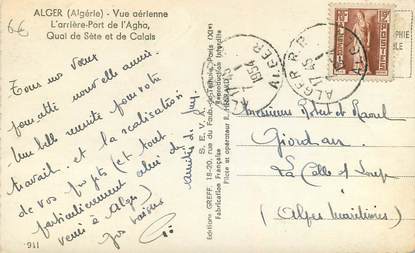 6€
ALGER (Algérie) - Vue aérienne
L'arrière-Port de l'Agha,
Quai de Sète et de Calais
Tous nos vœux
pour cette nouvelle année
Une belle réussite pour votre
travail et la réalisation
de vos projets (et tout
particulièrement celui de
venir à Alger)
gros baisers
amitiés de
S. E. V. A.
Editions GREFF, 18-20, rue du Faub.-du-Temple, Paris (XIe)
Fabrication Française
Reproduction Interdite
Pilote et opérateur R. HENRARD
ALGER R.P.
1954
ALGER
Messieurs Robert et Raoul
Giordan
La Colle s/ Loup
(Alpes Maritimes)
911